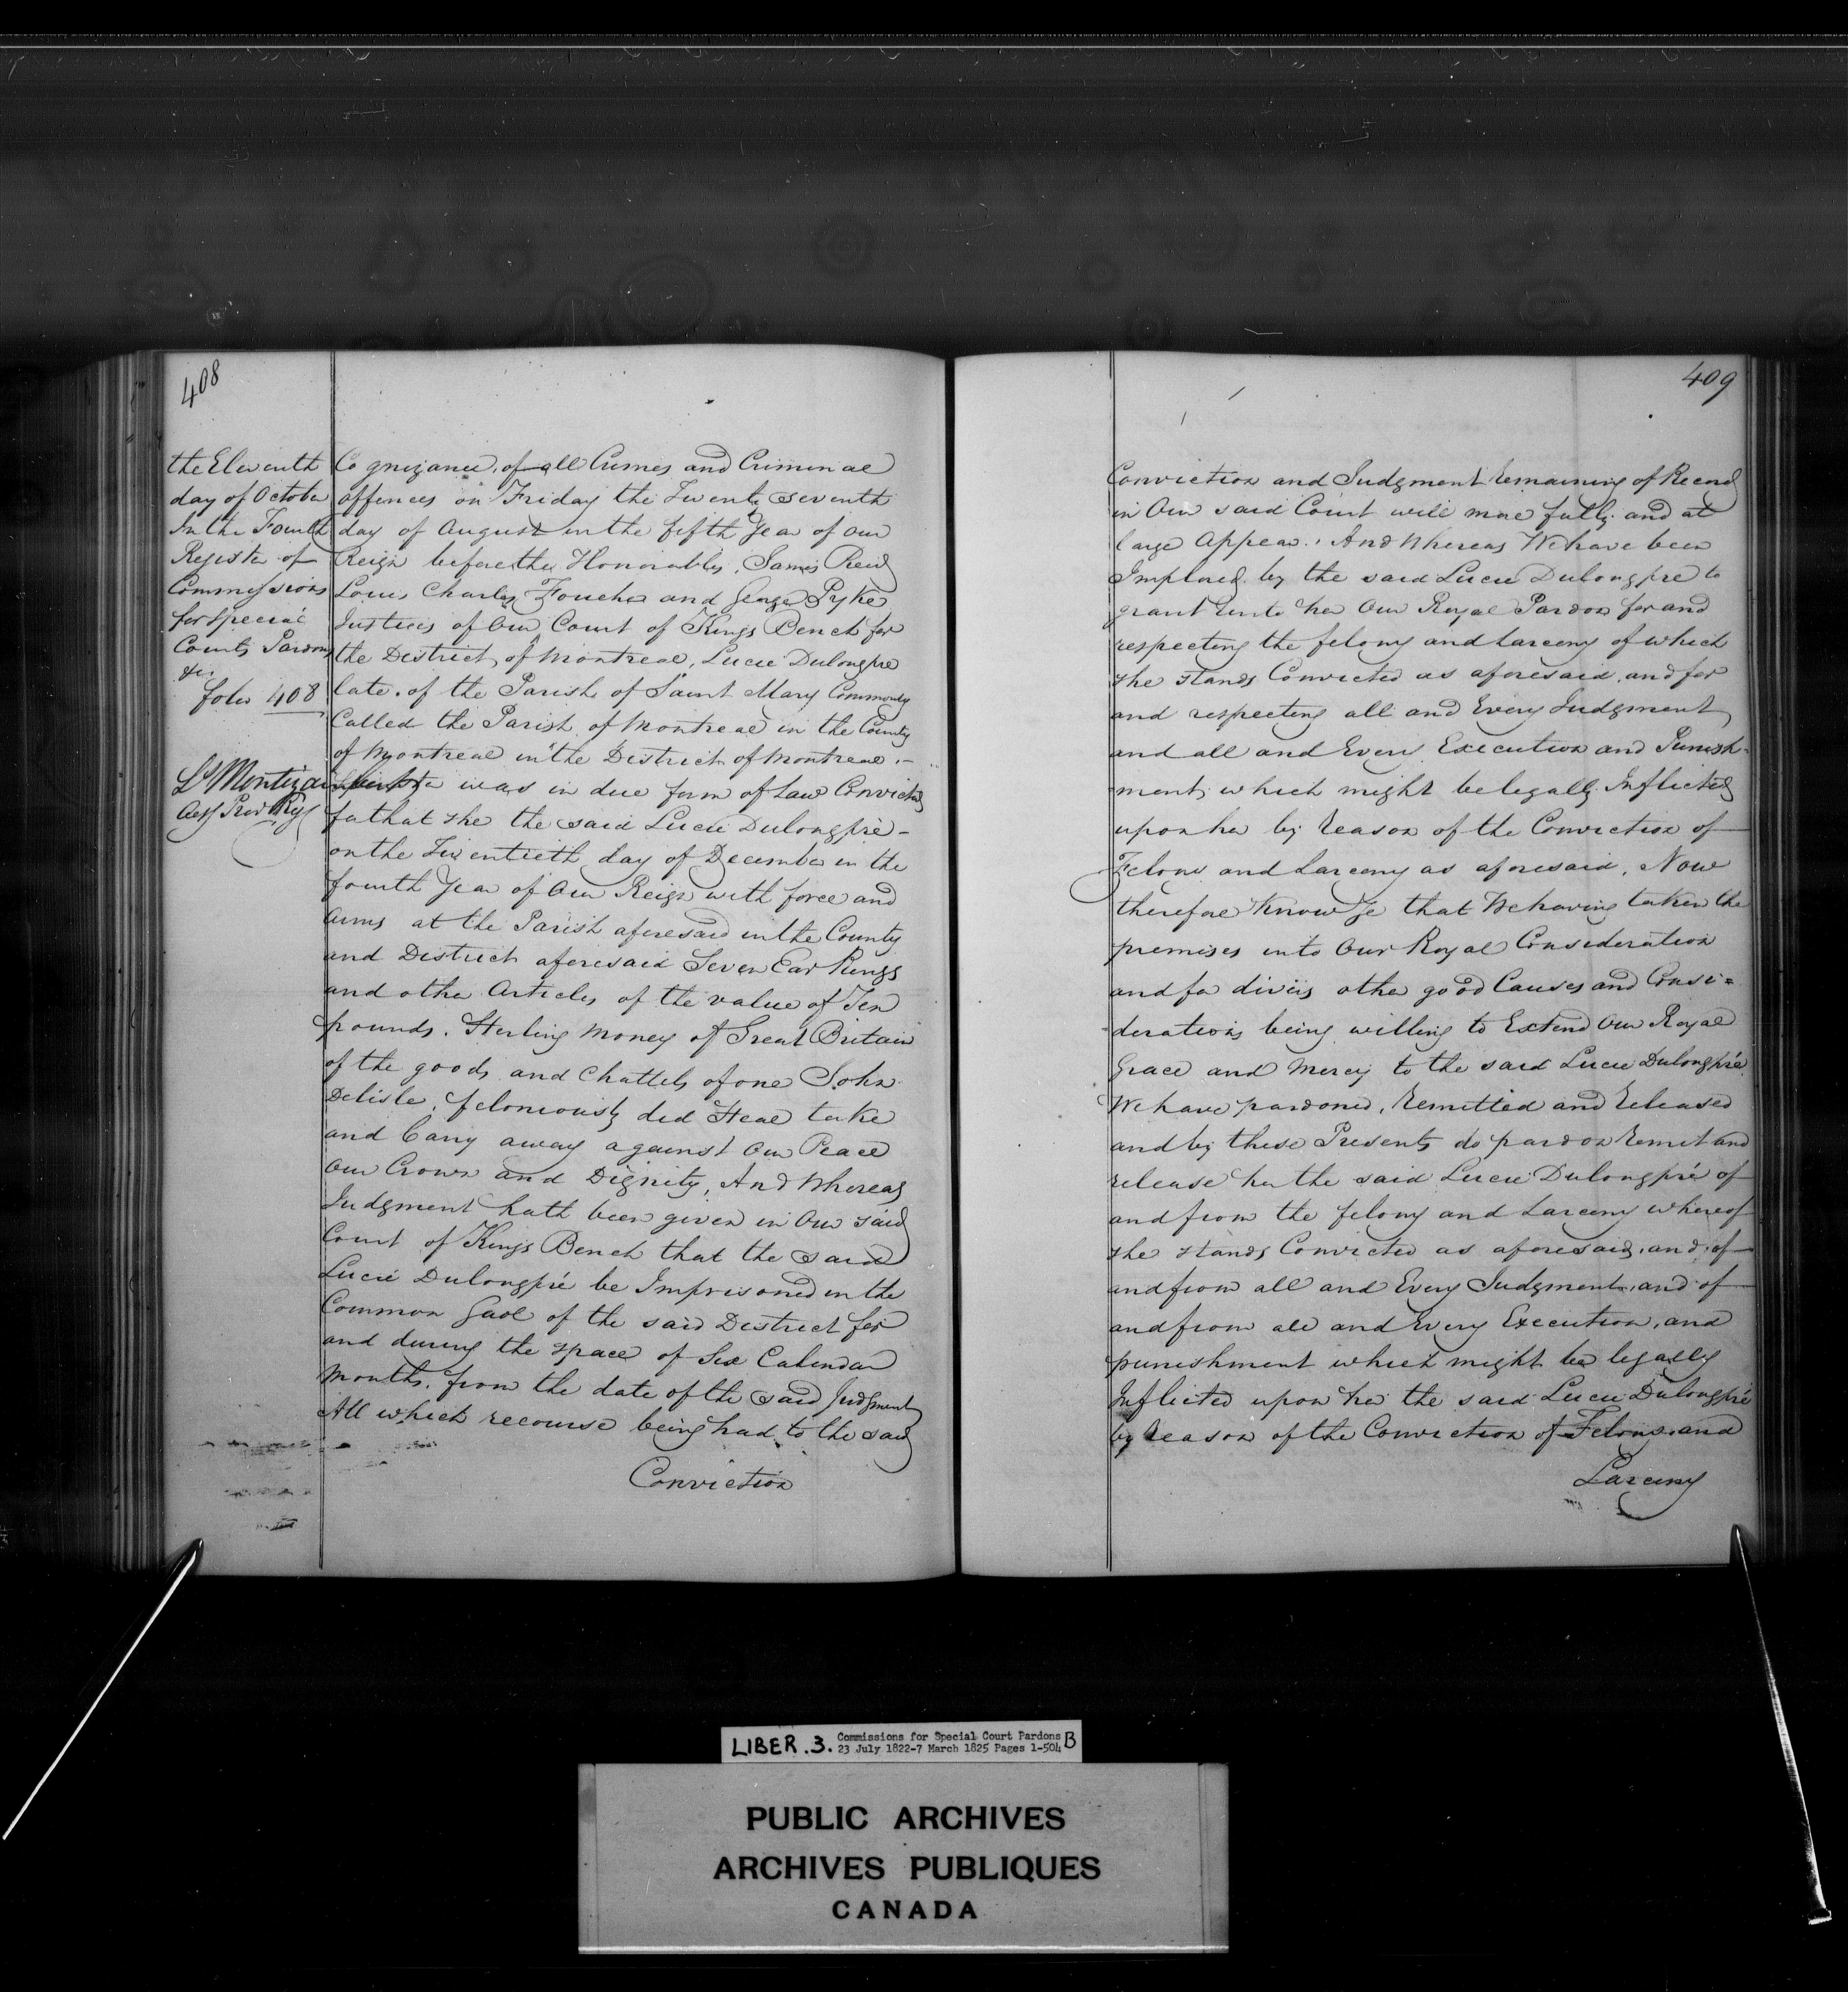 408
the Eleventh
day of October
In the Fourth
Register of
Commissions
for special
Courts Pardons
&c.
folio 408
Ls Montizambert
Assr Provl Regr
Cognizance, of all Crimes and Criminal
offences on Friday the Twenty seventh
day of August in the fifth Year of our
Reign before the Honorables, James Reid
Louis Charles Foucher and George Pyke
Justices of Our Court of Kings Bench for
the District of Montreal, Lucie Dulongpre
late of the Parish of Saint Mary Commonly
Called the Parish of Montreal in the County
of Montreal in the District of Montreal -
was in due form of Law Convicted
for that she the said Lucie Dulongpré -
on the Twentieth day of December in the
fourth Year of Our Reign with force and
Arms at the Parish aforesaid in the County
and District aforesaid Seven Ear Rings
and other Articles of the value of Ten
pounds. Sterling Money of Great Britain
of the goods and Chattels of one John
Delisle, feloniously did Steal take
and Carry away against Our Peace
Our Crown and Dignity, And Whereas
Judgment hath been given in Our said
Court of Kings Bench that the said
Lucie Dulongpré be Imprisoned in the
Common Gaol of the said District for
and during the space of Six Calendar
Months, from the date of the said Judgment
All which recourse being had to the said
Conviction
409
Conviction and Judgment remaining of Record
in Our said Court will more fully and at
large Appear. And Whereas We have been
Implored by the said Lucie Dulongpre to
grant unto her Our Royal Pardon for and
respecting the felony and Larceny of which
she stands Convicted as aforesaid, and for
and respecting all and Every Judgment
and all and Every Execution and Punish-
ment which might be legally Inflicted
upon her by reason of the Conviction of
Felony and Larceny as aforesaid, Now
therefore Know Ye that We having taken the
premises into Our Royal Consideration
and for divers other good Causes and Consi=
derations being willing to Extend Our Royal
Grace and Mercy to the said Lucie Dulongpré
We have pardoned, Remitted and Released
and by these Presents do pardon Remit and
release her the said Lucie Dulongpré of
and from the felony and Larceny whereof
she stands Convicted as aforesaid, and of
and from all and Every Judgment, and of
and from all and Every Execution, and
punishment which might be legally
Inflicted upon her the said Lucie Dulongpré
by reason of the Conviction of Felony and
Larceny
LIBER .3. Commissions for Special Court Pardons B
23 July 1822-7 March 1825 Pages 1-504
PUBLIC ARCHIVES
ARCHIVES PUBLIQUES
CANADA